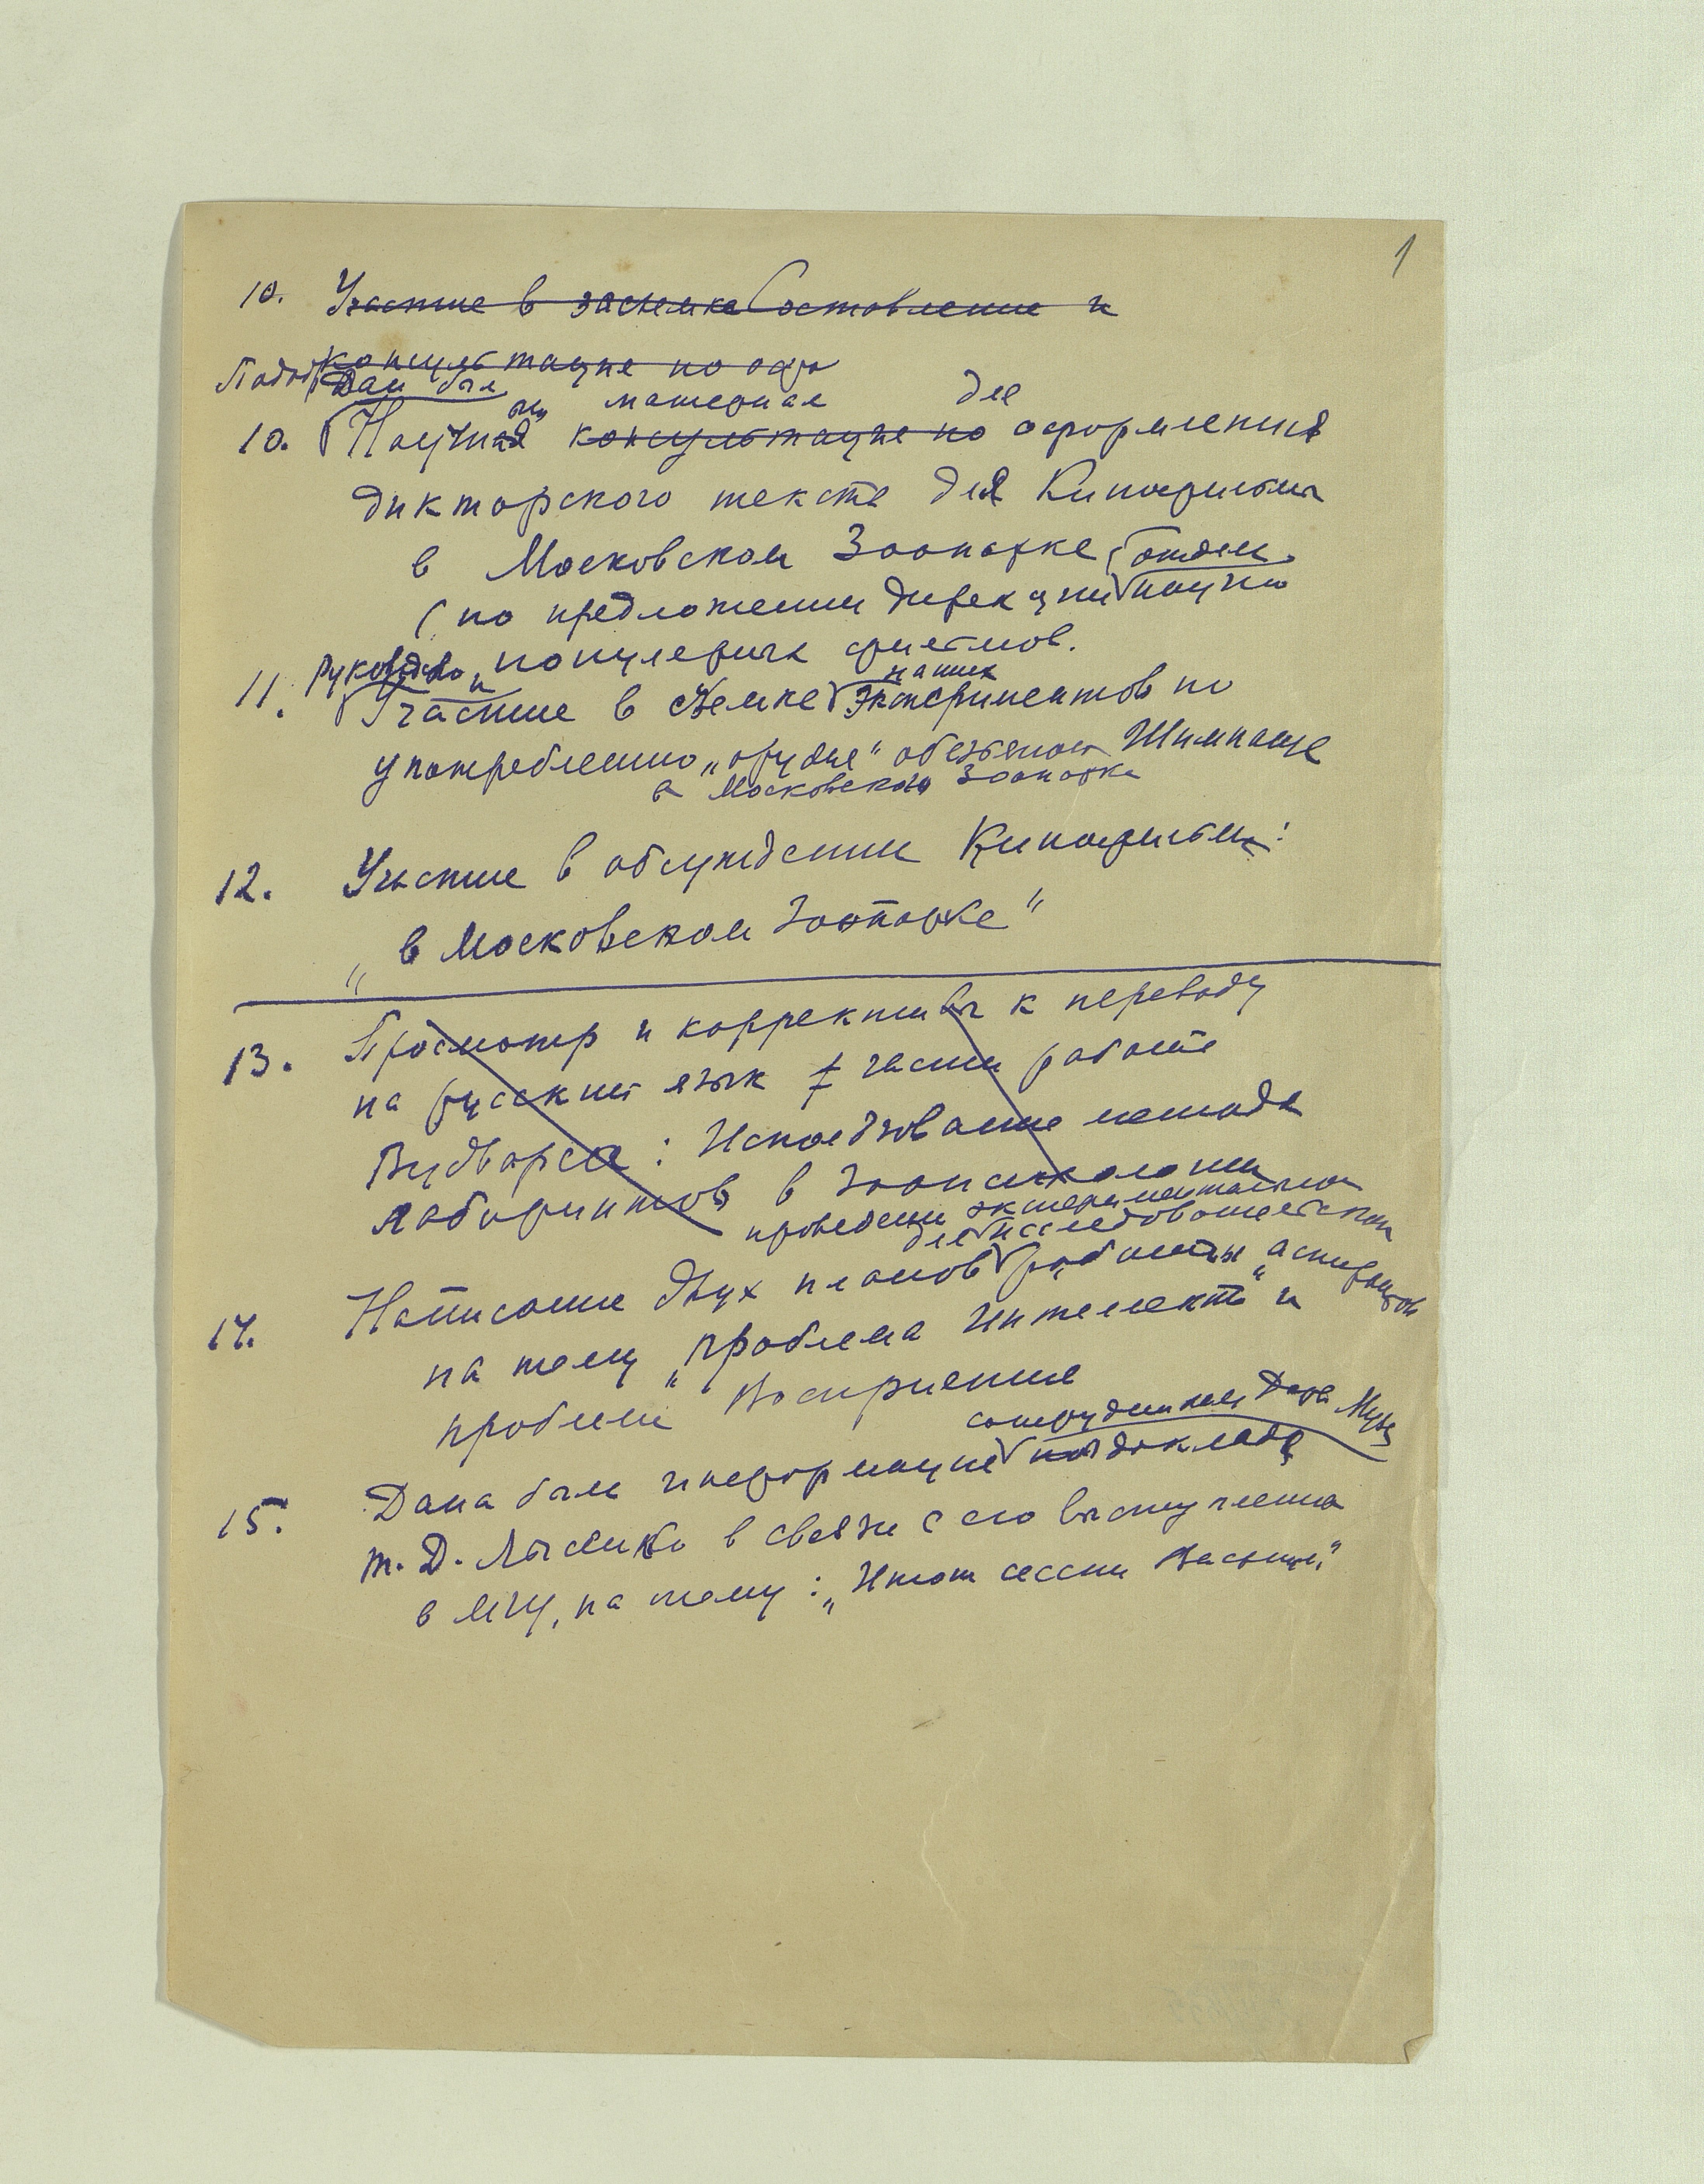 1
10. Участие в засъемке Составление и
консультация по офо
Подоб Дан был
ный материал для
10. Научная консультация по оформления
дикторского текста для Кинофильма
в Московском Зоопарке, отдел.
(по предложении дирекции научно
популярных фильмов.
Руководство и наших
11. Участие в съемке экспериментов по
употреблению „орудия" обезьяной Шимпанзе
в Московского Зоопарка
12. Участие в обсуждении Кинофильма:
„в Московском Зоопарке"
13. Просмотр и коррективы к переводу
на русский язык 7 части работе
Вудворса: Использование метода
лабиринтов в Зоопсихологии
проведения экспериментально
для исследовательской
14. Написание двух планов работы аспирантов
на тему „проблема Интеллекта" и
„проблема Восприятия
сотрудникам Дарв. Музея
15. Дана была информация по докладе
т. Д. Лысенко в связи с его выступлению
в МГУ, на тему: „Итоги сессии Васхнил"